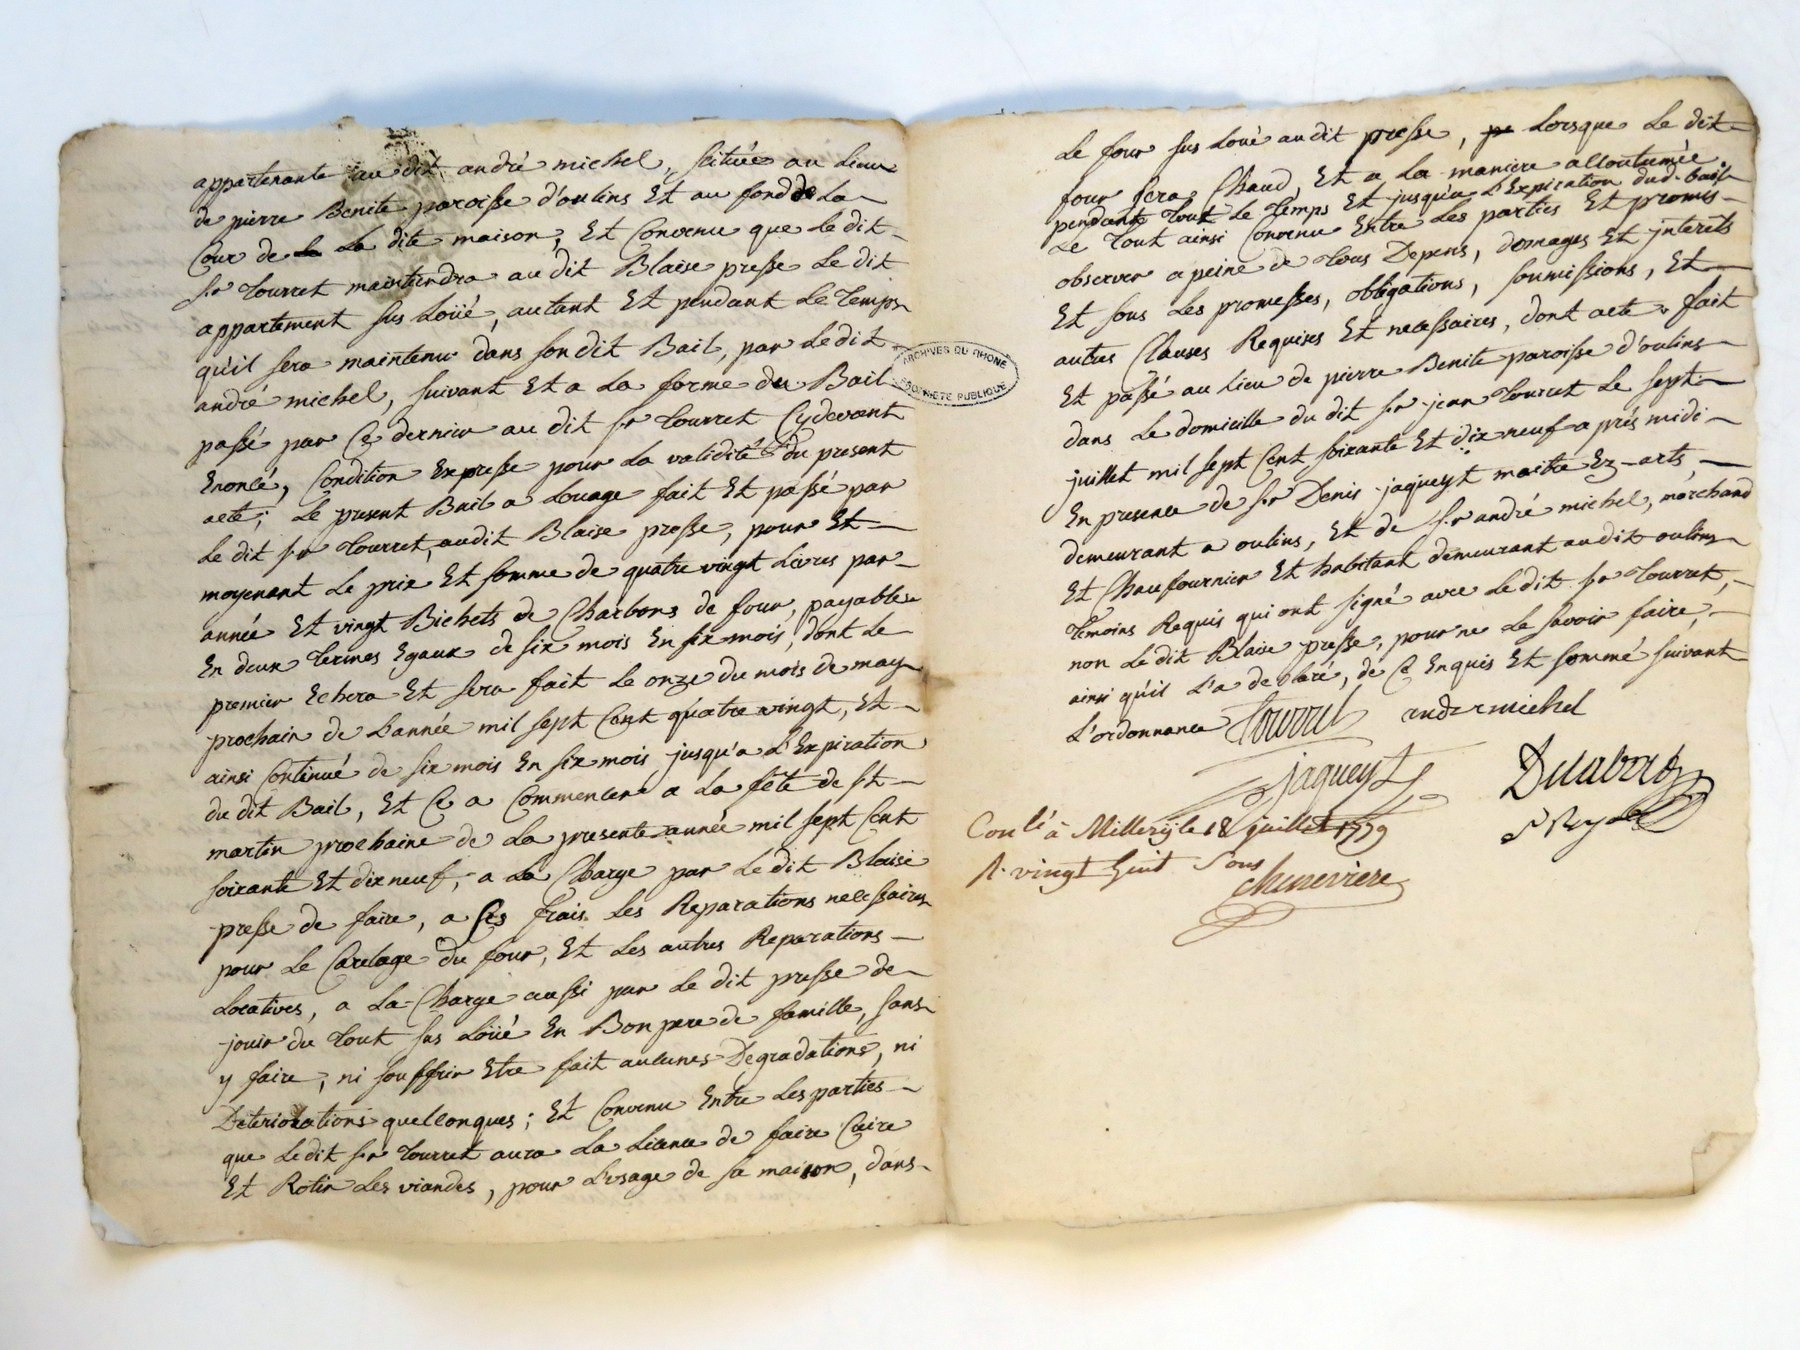 appartenante au dit andré michel, scituée au Lieu
de pierre Benite paroisse d'oulins Et au fond de La
Cour de La dite maison, Et Convenu que Le dit
sr Tourret maintiendra au dit Blaise presse Le dit
appartement sus Loüé, autant Et pendant Le Temps
qu'il sera maintenu dans son dit Bail, par Le dit
andré michel, suivant Et a La forme du Bail
passé par Ce dernier au dit sr Tourret Cydevant
Enoncé, Condition Expresse pour La validité du present
acte; Le present Bail a Louage fait Et passé par
Le dit sr Tourret, audit Blaise presse, pour Et
moyenant Le prix Et somme de quatre vingt Livres par
année Et vingt Bichets de Charbons de four, payables
En deux Termes Egaux de six mois En six mois, dont Le
premier Echera Et sera fait Le onze du mois de may
prochain de L'année mil sept Cent quatre vingt, Et
ainsi Continué de six mois En six mois jusqu'a L'Expiration
du dit Bail, Et Ce a Commencer a La fête de st
martin prochaine de La presente année mil sept Cent
soixante Et dix neuf, a La Charge par Le dit Blaise
presse de faire, a ses frais Les Reparations necessaires
pour Le Carelage du four, Et Les autres Reparations
Locatives, a La Charge aussi par Le dit presse de
jouir du Tout sus Loüé En Bon pere de famille, sans
y faire, ni souffrir Etre fait aucunes Degradations, ni
Deteriorations quellonques; Et Convenu Entre Les parties
que Le dit sr Tourret aura La Licence de faire Cuire
Et Rotir Les viandes, pour L'usage de sa maison, dans
Le four sus Loué au dit presse, pe Lorsque Le dit
four sera Chaud, Et a La maniere accoutumée
pendant Tout Le Temps Et jusqu'a L'Expiration dud. bail
Le Tout ainsi Convenu Entre Les parties Et promis
observer a peine de Tous Depens, domages Et interêts
Et sous Les promesses, obligations, soumissions, Et
autres Clauses Requises Et necessaires, dont acte fait
Et passé au Lieu de pierre Benite paroisse d'oulins
dans Le domicille du dit sr jean Tourret Le sept
juillet mil sept Cent soixante Et dix neuf a prés midi
En presence de sr Denis jaqueyt maitre Ez-arts
demeurant a oulins, Et de sr andré michel, marchand
Et Chaufournier Et habitant demeurant au dit oulins
Temoins Requis qui ont signé avec Le dit sr Tourret,
non Le dit Blaise presse, pour ne Le savoir faire,
ainsi qu'il L'a declaré, de Ce Enquis Et sommé suivant
L'ordonnance Tourret andre michel
jaqueyt
Conlé à Millery le 18 juillet 1779
R. vingt huit Sous
Chenevière
ARCHIVES DU RHONE
PROPRIETE PUBLIQUE